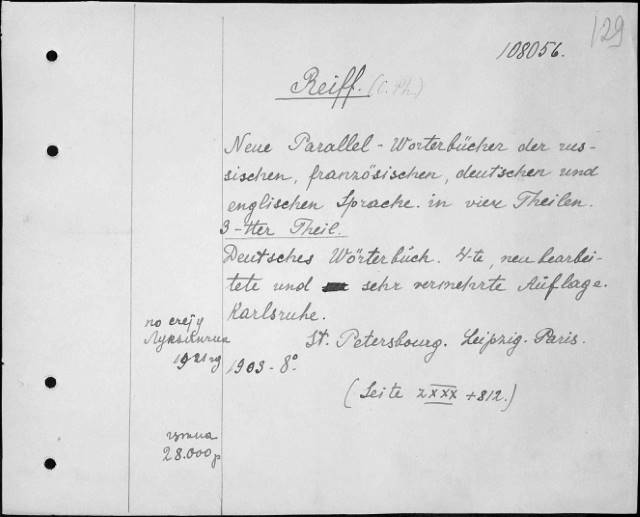 129
108056.
Reiff. (C. Ph.)
Neue Parallel - Worterbücher der rus-
sischen, französischen, deutschen und
englischen Sprache. in vier Theilen.
3-tter Theil.
Deutsches Wörterbuch. 4-te, neu bearbei-
tete und sehr vermehrte Auflage.
Karlsruhe.
St. Petersbourg. Leipzig. Paris.
1903 - 8°
(Seite zxxx + 812.)
по
1921
28.000